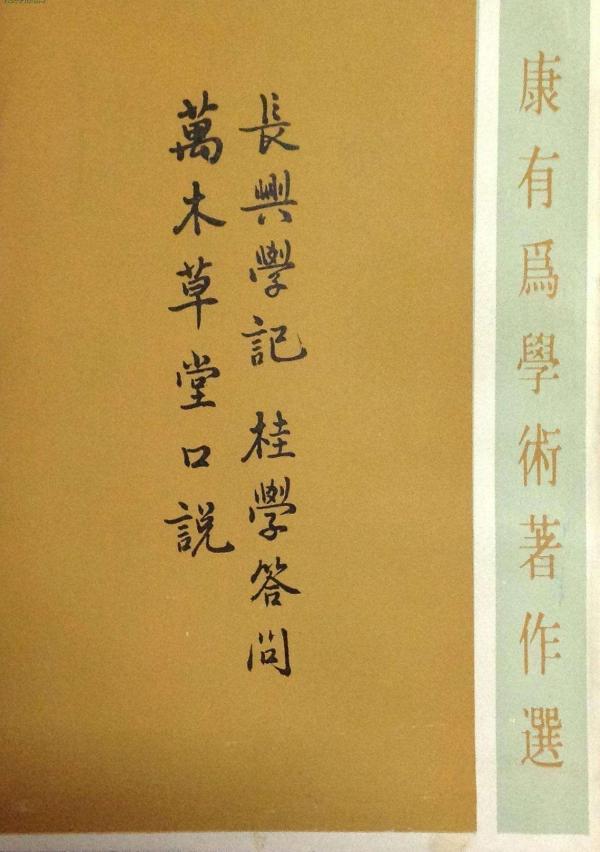 康有爲學術著作選
長興學記 桂學答問
萬木草堂口説